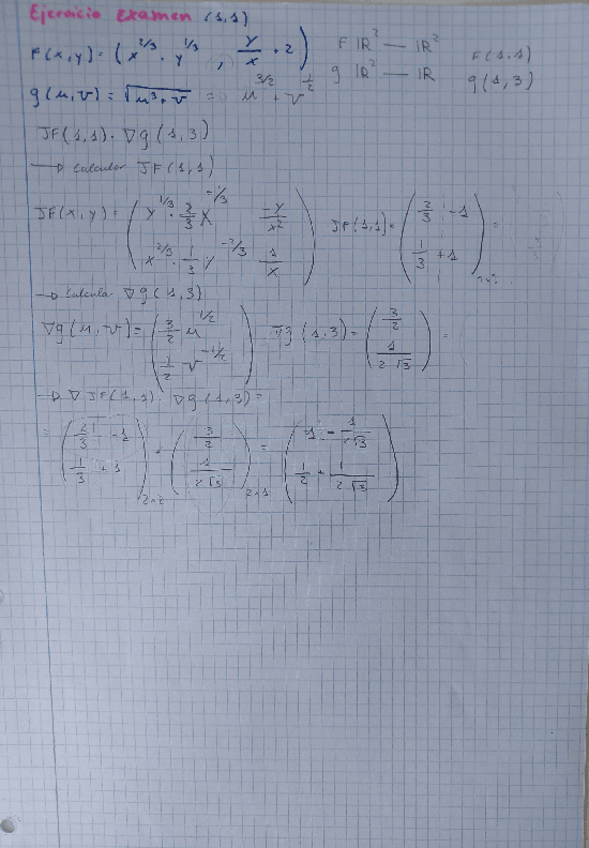 Ejercicio Examen (1,1)
F(x,y) = ( x^2/3 · y^1/3 , y/x + 2 )   F |R^2 — |R^2   F(1,1)
g(u,v) = √(u^3 + v) = u^3/2 + v^1/2   g |R^2 — |R   g(1,3)
JF(1,1) · ∇g(1,3)
→ calcular JF(1,1)
JF(x,y) = ( y^1/3 · 2/3 x^-1/3   -y/x^2 ; x^2/3 · 1/3 y^-2/3   1/x )   JF(1,1) = ( 2/3 -1 ; 1/3 +1 )2x2 =
→ calcular ∇g(1,3)
∇g(u,v) = ( 3/2 u^1/2 ; 1/2 v^-1/2 )   ∇g(1,3) = ( 3/2 ; 1/2√3 ) =
→ ∇ JF(1,1) · ∇g(1,3) =
= ( 2/3 -1 ; 1/3 +1 )2x2 · ( 3/2 ; 1/2√3 )2x1 = ( 1 - 1/2√3 ; 1/2 + 1/2√3 )